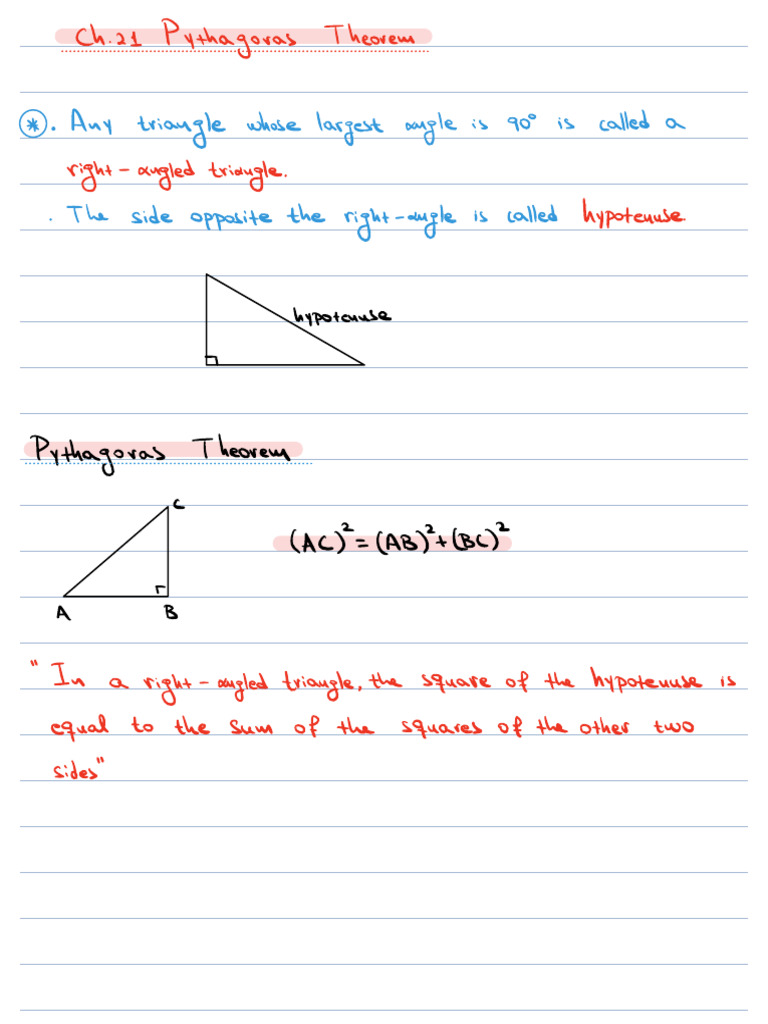 Ch.21 Pythagoras Theorem
*. Any triangle whose largest angle is 90° is called a
right-angled triangle.
. The side opposite the right-angle is called hypotenuse
hypotenuse
Pythagoras Theorem
C
(AC)² = (AB)² + (BC)²
A B
"In a right-angled triangle, the square of the hypotenuse is
equal to the sum of the squares of the other two
sides"